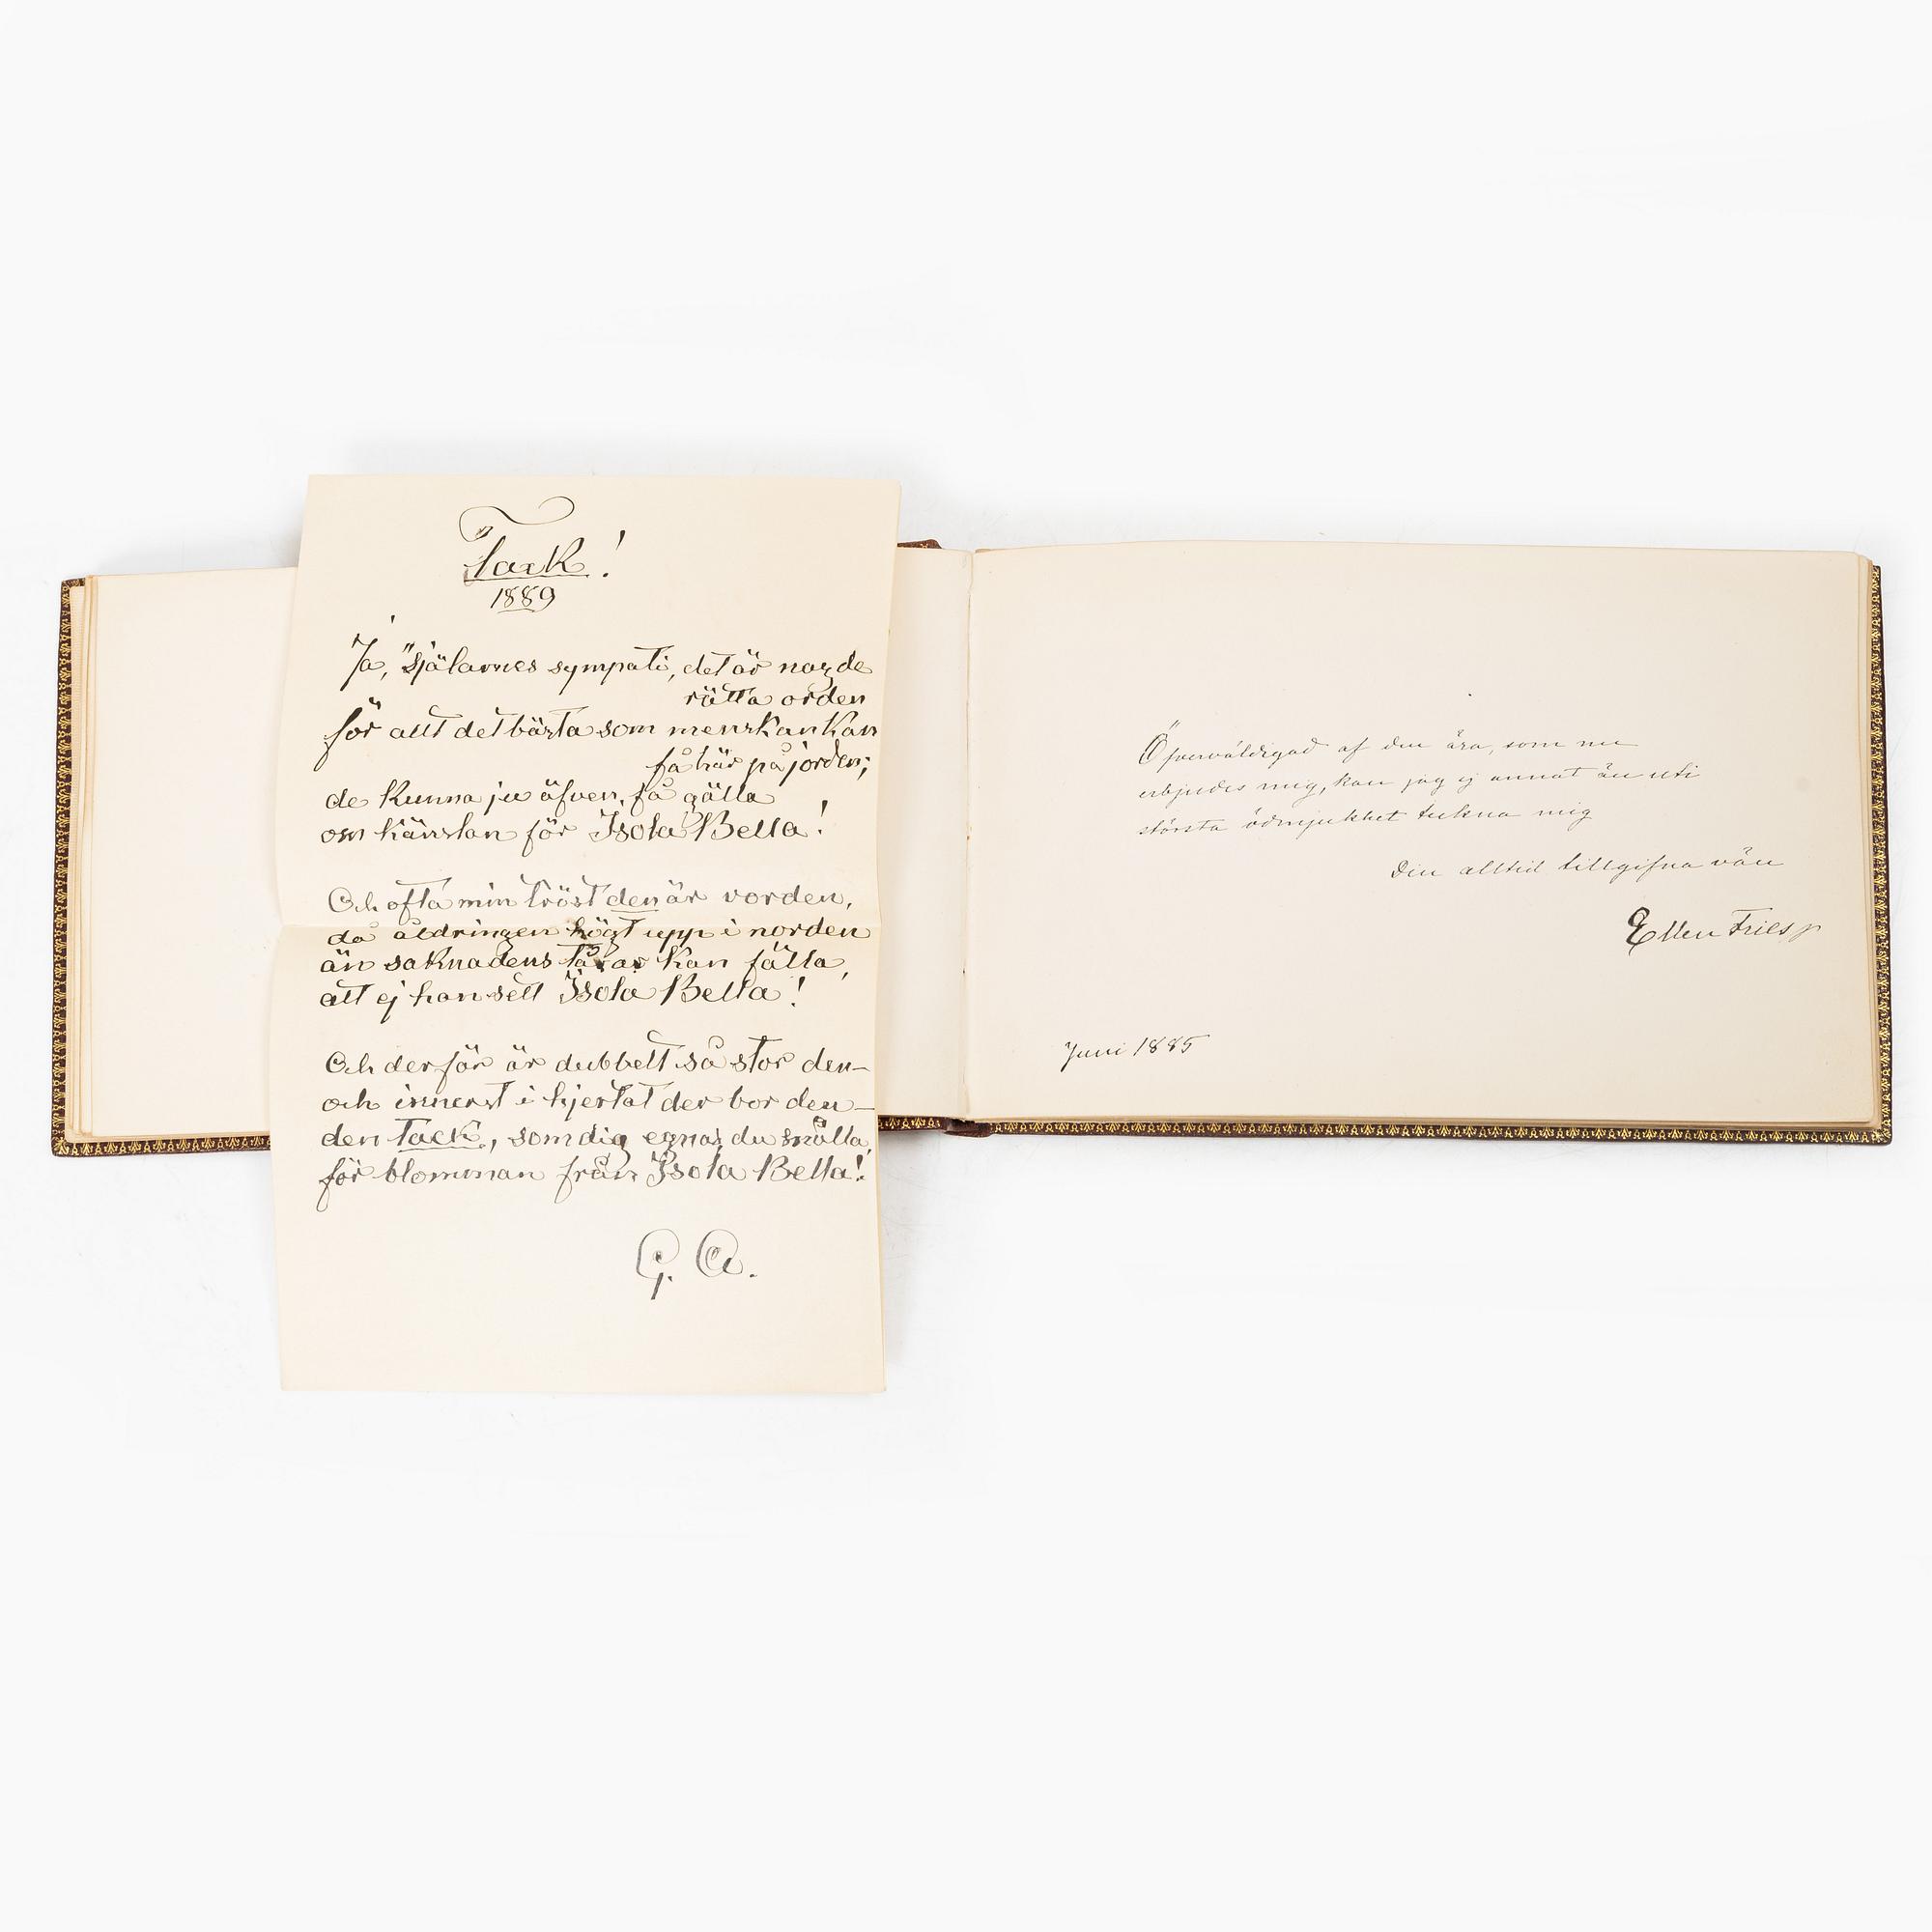 Tack!
1889
Ja, "själarnes sympati, det är nog de
rätta orden
för allt det bästa som menskan kan
få här på jorden;
de kunna ju äfven få gälla
om känslan för Isola Bella!
Och ofta min tröst den är vorden,
då åldringen högt upp i norden
än saknadens tårar kan fälla,
att ej han sett Isola Bella!
Och derför är dubbelt så stor den—
och innerst i hjertat der bor den—
den Tack, som dig egnas, du snälla,
för blomman från Isola Bella!
G. A.
Öfverväldigad af den ära, som nu
erbjudes mig, kan jag ej annat än uti
största ödmjukhet tekna mig
Din alltid tillgifna vän
Ellen Fries
Juni 1885